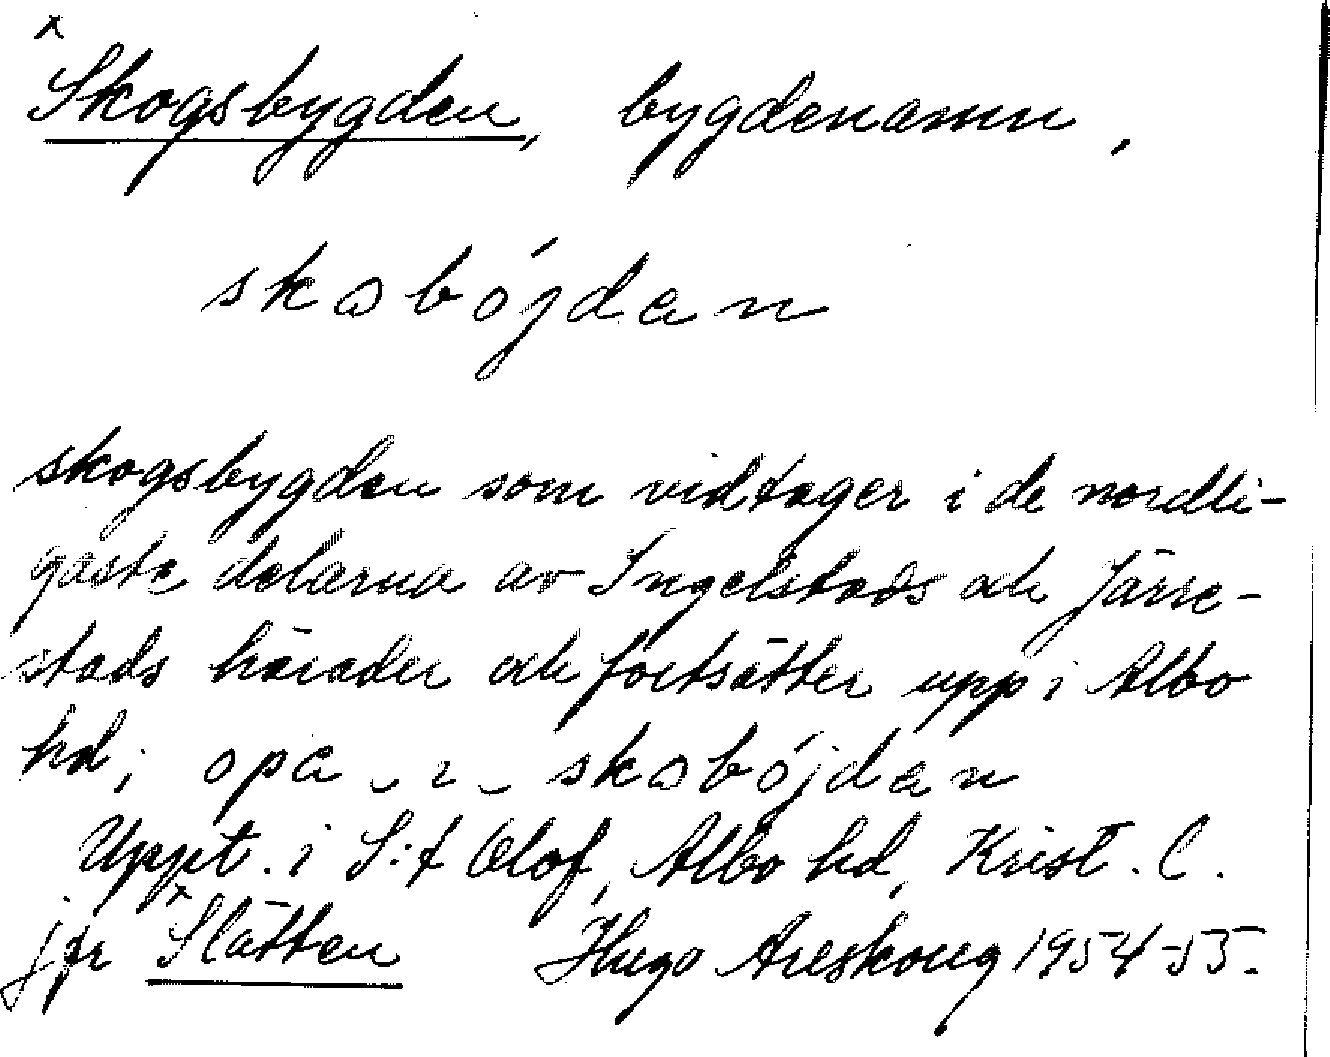 ^Skogsbygden, bygdenamn,
skabǿjdan
skogsbygden som vidtager i de nordli-
gaste delarna av Ingelstads och Järre-
stads härader och fortsätter upp i Albo
hd; opa - i - skabǿjdan
Uppt. i S:t Olof, Albo hd, Krist. l.
jfr ^Slätten Hugo Areskoug 1954-55.